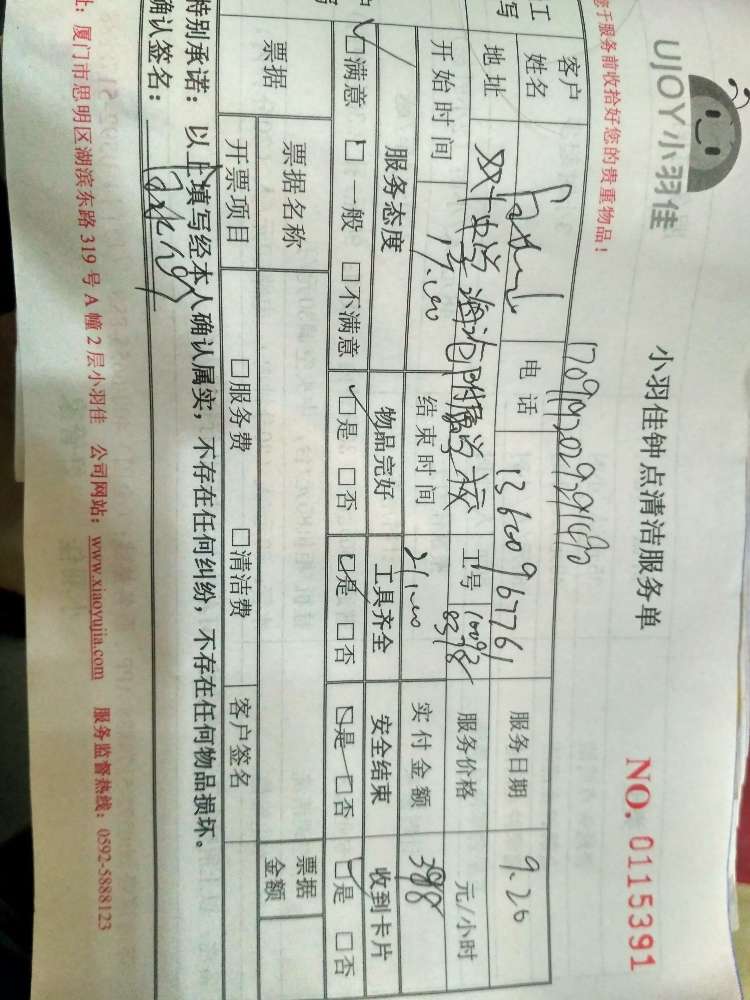 UJOY小羽佳
小羽佳钟点清洁服务单
NO. 0115391
您于服务前收拾好您的贵重物品！
客户
姓名
电话 13600967761
服务日期 9.26
地址 双十中学海沧附属学校
工号
服务价格 元/小时
开始时间 17:00
结束时间 21:00
实付金额 398
服务态度 物品完好 工具齐全 安全结束 收到卡片
□满意 □一般 □不满意 □是 □否 □是 □否 □是 □否 □是 □否
票据 票据名称
票据
金额
开票项目 □服务费 □清洁费 客户签名
特别承诺：以上填写经本人确认属实，不存在任何纠纷，不存在任何物品损坏。
确认签名：
址：厦门市思明区湖滨东路 319 号 A 幢 2 层小羽佳 公司网站：www.xiaoyujia.com 服务监督热线：0592-5888123